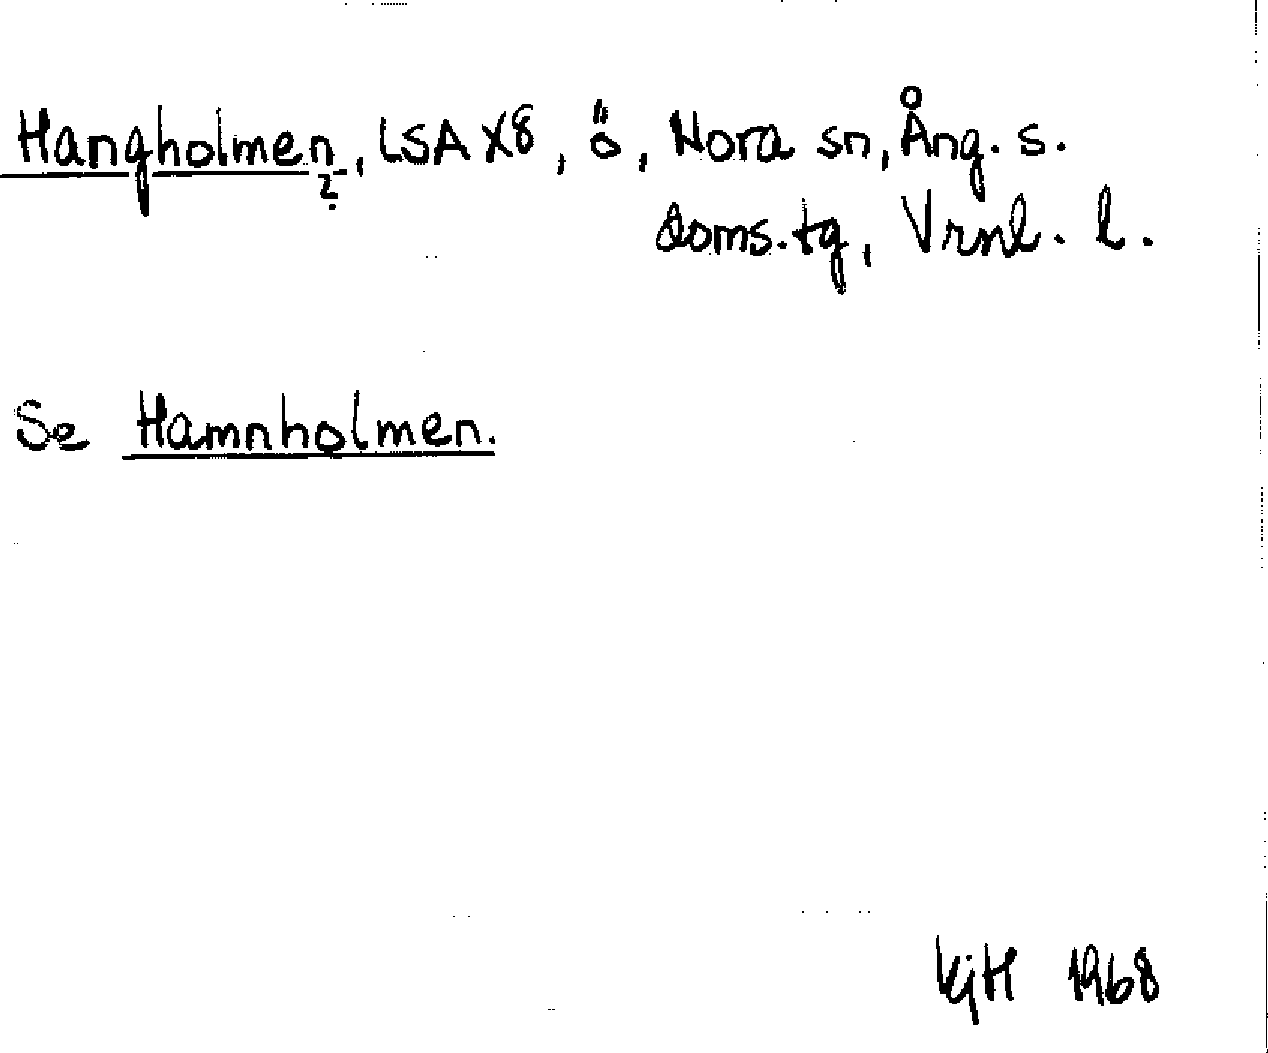 Hangholmen, LSA X8, ö, Nora sn, Ång. s.
doms. tg, Vrnl. l.
Se Hamnholmen.
KjH 1968